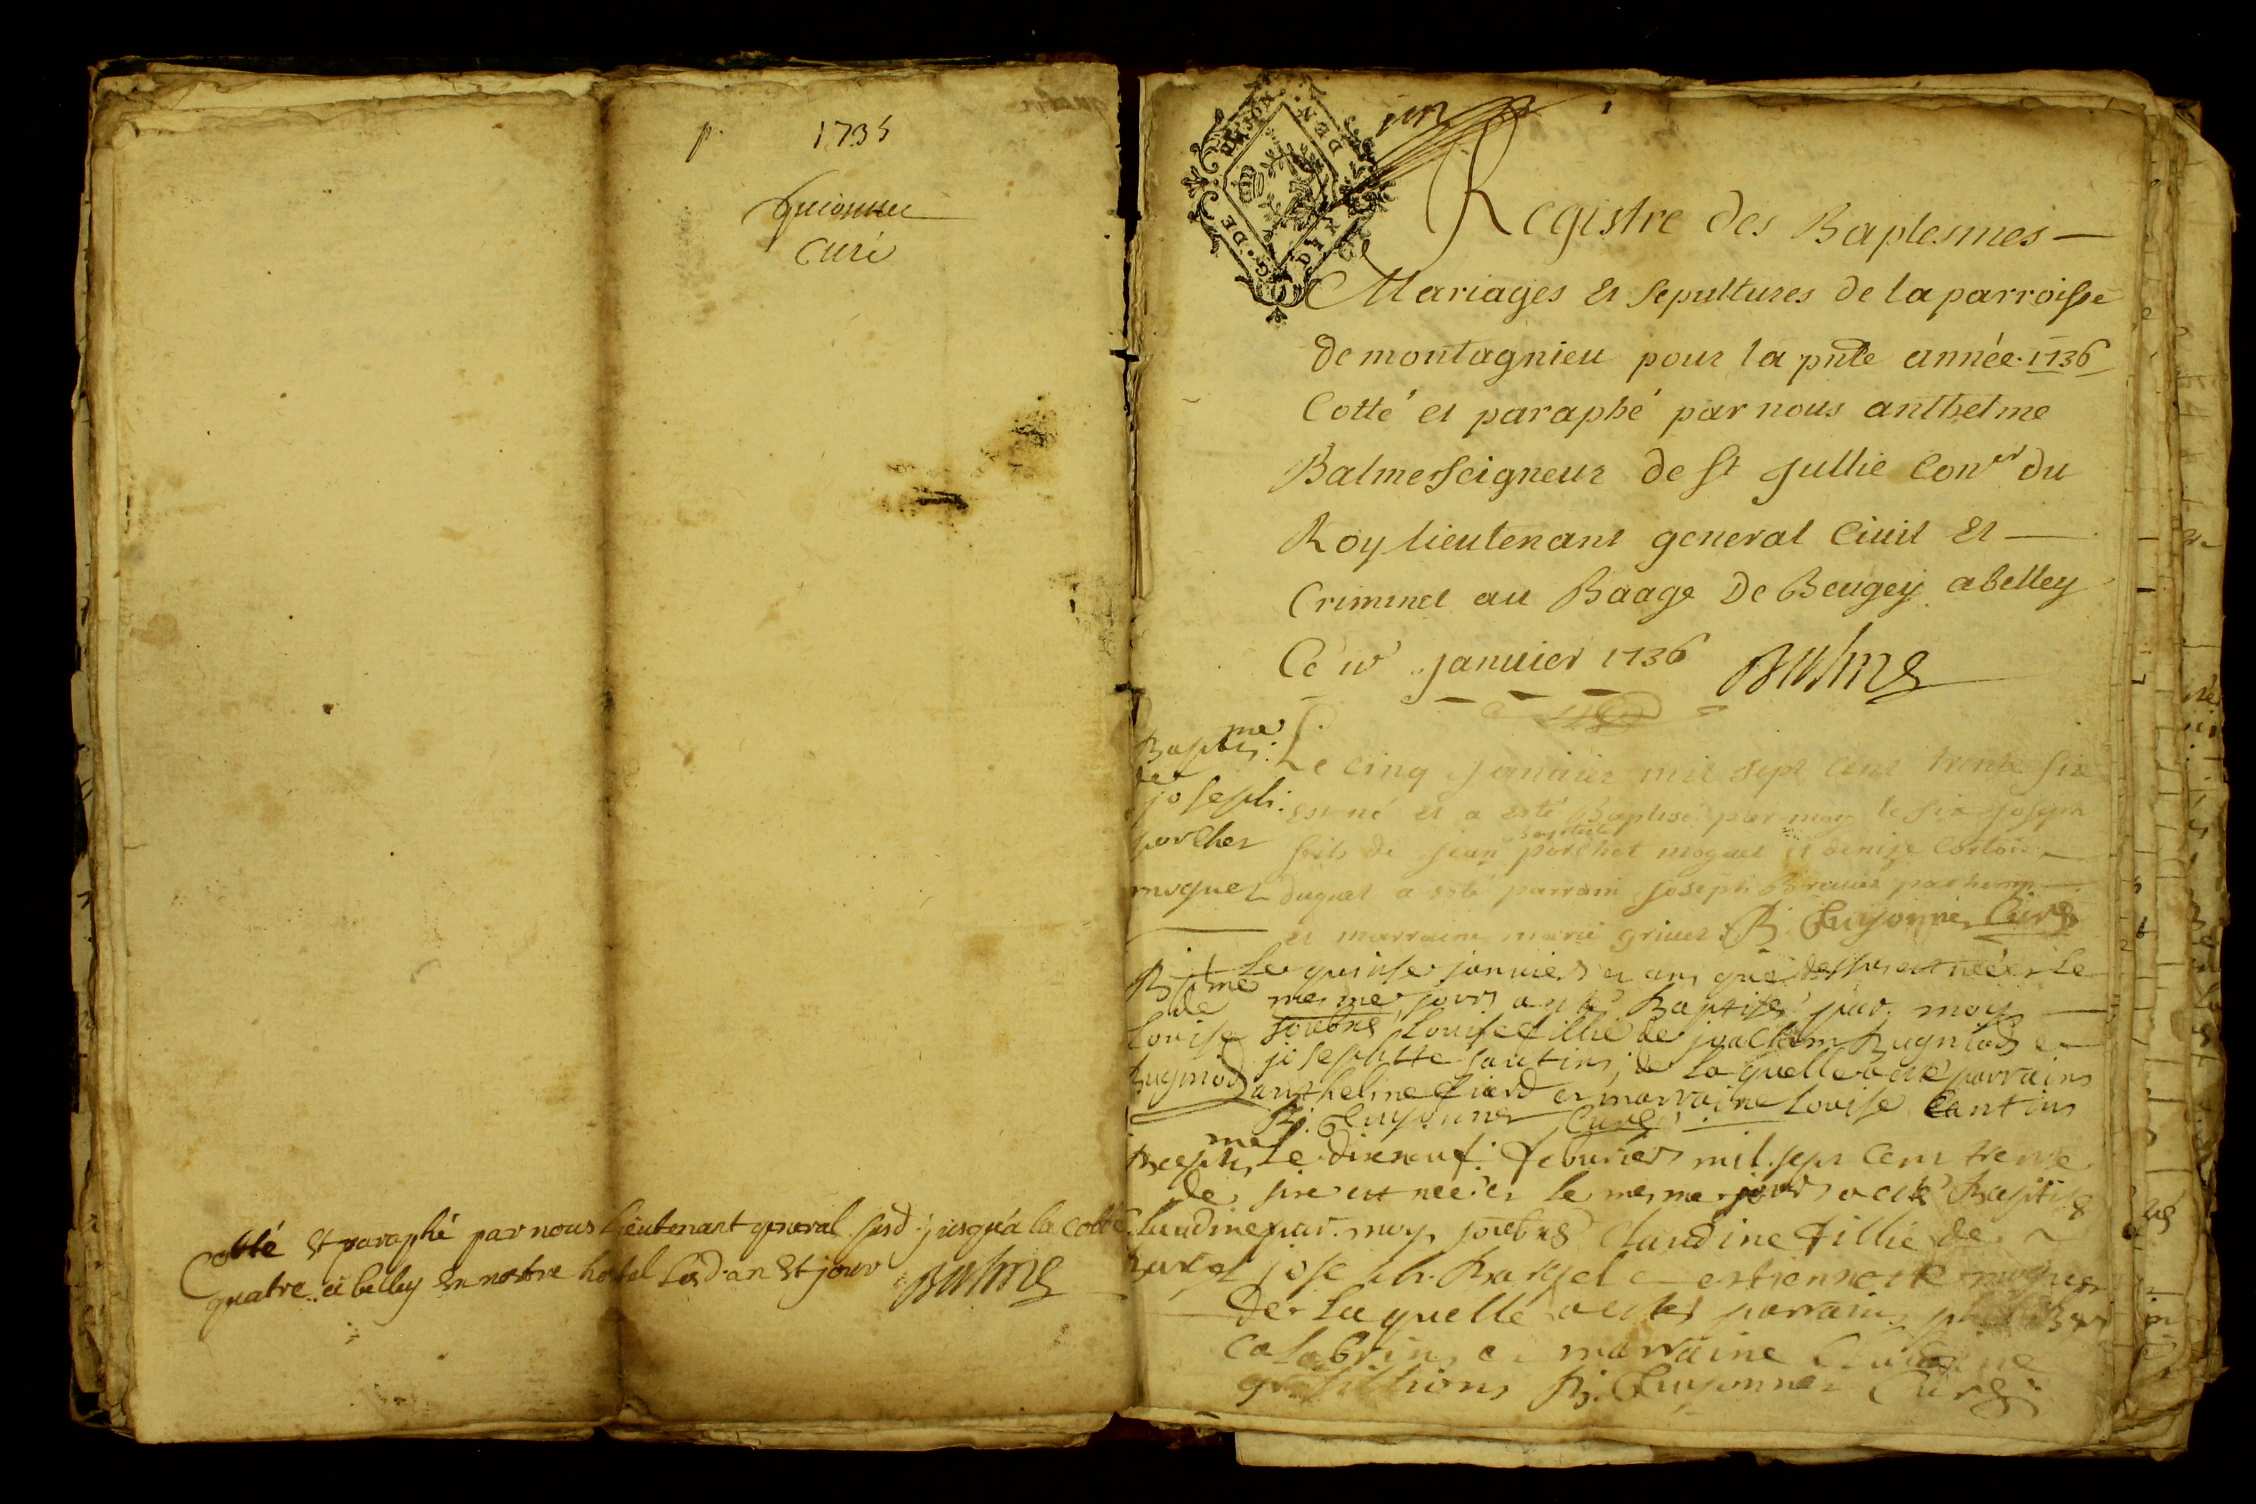 p. 1735
Guionnet
Curé
Cotté et paraphé par nous Lieutenant general susd. jusqu'a la cotte
quatre. a belley en nostre hostel Lesd. an et jour Balme
GEN. DE DIJON
DEN
DIX
Registre des Baptesmes
Mariages et sepultures de la parroisse
de montagnieu pour la pnte année 1736
Cotté et paraphé par nous anthelme
Balme seigneur de st jullie Coner du
Roy lieutenant general Civil et
Criminel au Baage De Beugey a belley
Ce janvier 1736 Balme
Baptme
de
joseph
porchet
moguet
Le cinq janvier mil sept cent trente six
est né et a esté Baptisé par moy le six joseph
fils de jean baptiste porchet moguet et denize
duquel a esté parrain joseph
et marraine marie grivet B. Guyonnet Curé
Bptme
de
Louise
Rugnod
Le quinse janvier et an que dessus est née et Le
mesme jour a esté Baptisé par moy
soubne Louise fillie de joachim Rugniod et
josephtte santin, de Laquelle a esté parrains
anthelme et marraine Louise Cantin
B. Guyonnet Curé
Baptme
de
Claudine
Le dixneuf febvrier mil sept Cent trente
sixe est née et le mesme jour a esté Baptise
par moy soubne Claudine fillie de
joseph et moguet
de Laquelle a estes parrain
Calabrin et marraine
B. Guyonnet Curé